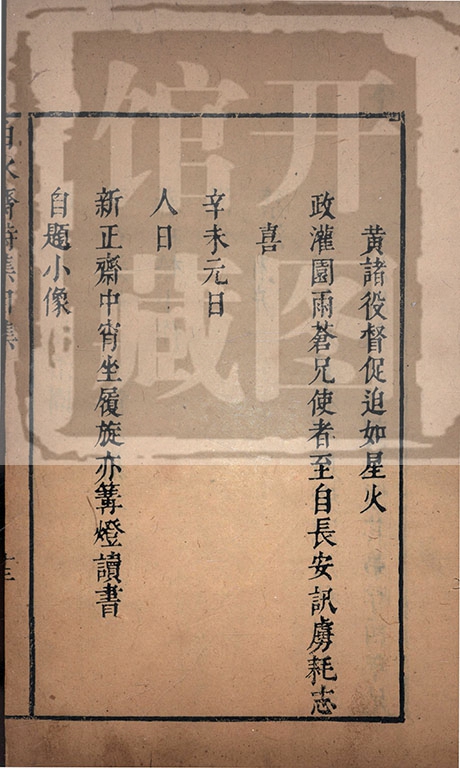 黃諸役督促迫如星火
政灌園雨蒼兄使者至自長安訊虜耗志
喜
辛未元日
人日
新正齋中宵坐履旋亦篝燈讀書
自題小像
开图
馆藏